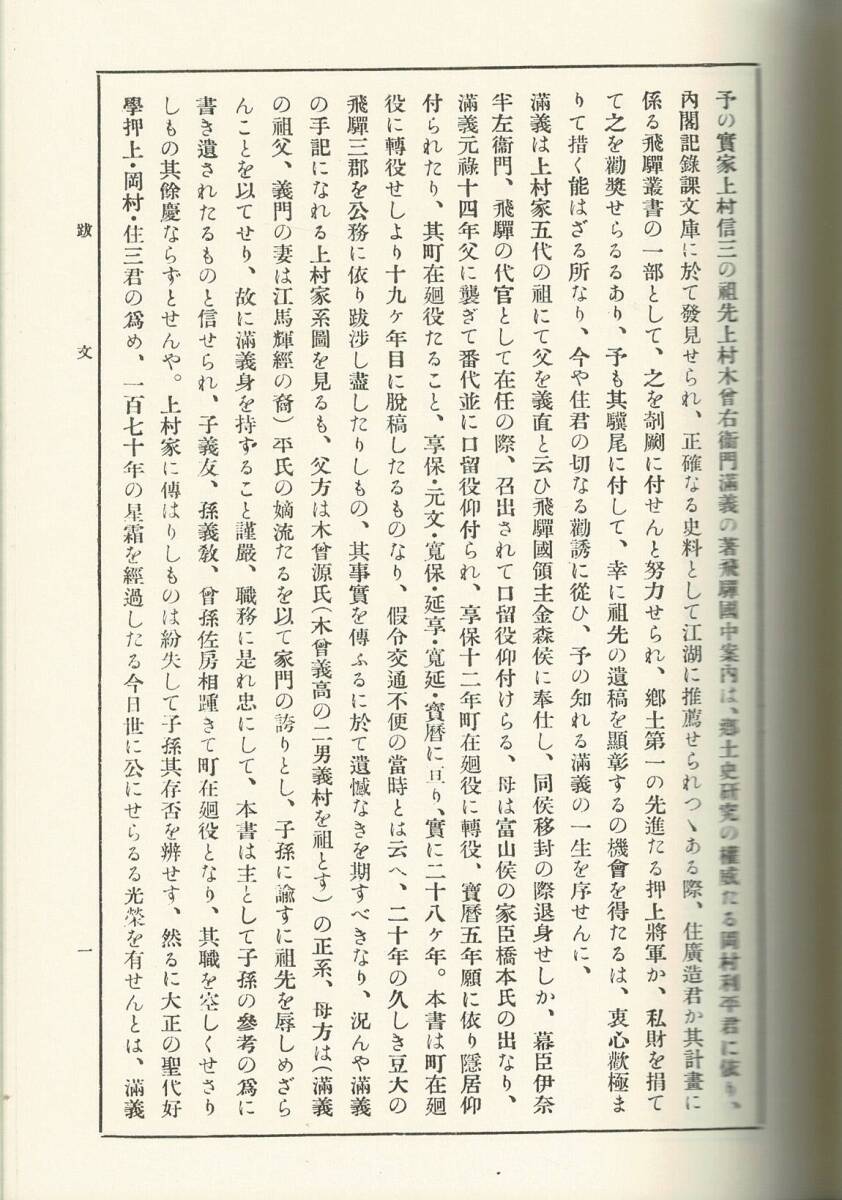 予の實家上村信三の祖先上村木曾右衞門滿義の著飛驒國中案内は、鄕土史研究の權威たる岡村利平君に依り、
內閣記錄課文庫に於て發見せられ、正確なる史料として江湖に推薦せられつゝある際、住廣造君か其計畫に
係る飛驒叢書の一部として、之を剞劂に付せんと努力せられ、鄕土第一の先進たる押上將軍か、私財を捐て
て之を勸奬せらるるあり、予も其驥尾に付して、幸に祖先の遺稿を顯彰するの機會を得たるは、衷心歡極ま
りて措く能はざる所なり、今や住君の切なる勸誘に從ひ、予の知れる滿義の一生を序せんに、
滿義は上村家五代の祖にて父を義直と云ひ飛驒國領主金森侯に奉仕し、同侯移封の際退身せしか、幕臣伊奈
半左衞門、飛驒の代官として在任の際、召出されて口留役仰付けらる、母は富山侯の家臣橋本氏の出なり、
滿義元祿十四年父に襲ぎて番代並に口留役仰付られ、享保十二年町在廻役に轉役、寶曆五年願に依り隱居仰
付られたり、其町在廻役たること、享保・元文・寬保・延享・寬延・寶曆に亘り、實に二十八ケ年。本書は町在廻
役に轉役せしより十九ケ年目に脫稿したるものなり、假令交通不便の當時とは云へ、二十年の久しき豆大の
飛驒三郡を公務に依り跋涉し盡したりしもの、其事實を傳ふるに於て遺憾なきを期すべきなり、況んや滿義
の手記になれる上村家系圖を見るも、父方は木曾源氏(木曾義高の二男義村を祖とす)の正系、母方は(滿義
の祖父、義門の妻は江馬輝經の裔)平氏の嫡流たるを以て家門の誇りとし、子孫に諭すに祖先を辱しめざら
んことを以てせり、故に滿義身を持すること謹嚴、職務に是れ忠にして、本書は主として子孫の參考の爲に
書き遺されたるものと信せられ、子義友、孫義敎、曾孫佐房相踵きて町在廻役となり、其職を空しくせさり
しもの其餘慶ならずとせんや。上村家に傳はりしものは紛失して子孫其存否を辨せす、然るに大正の聖代好
學押上・岡村・住三君の爲め、一百七十年の星霜を經過したる今日世に公にせらるる光榮を有せんとは、滿義
跋文
一